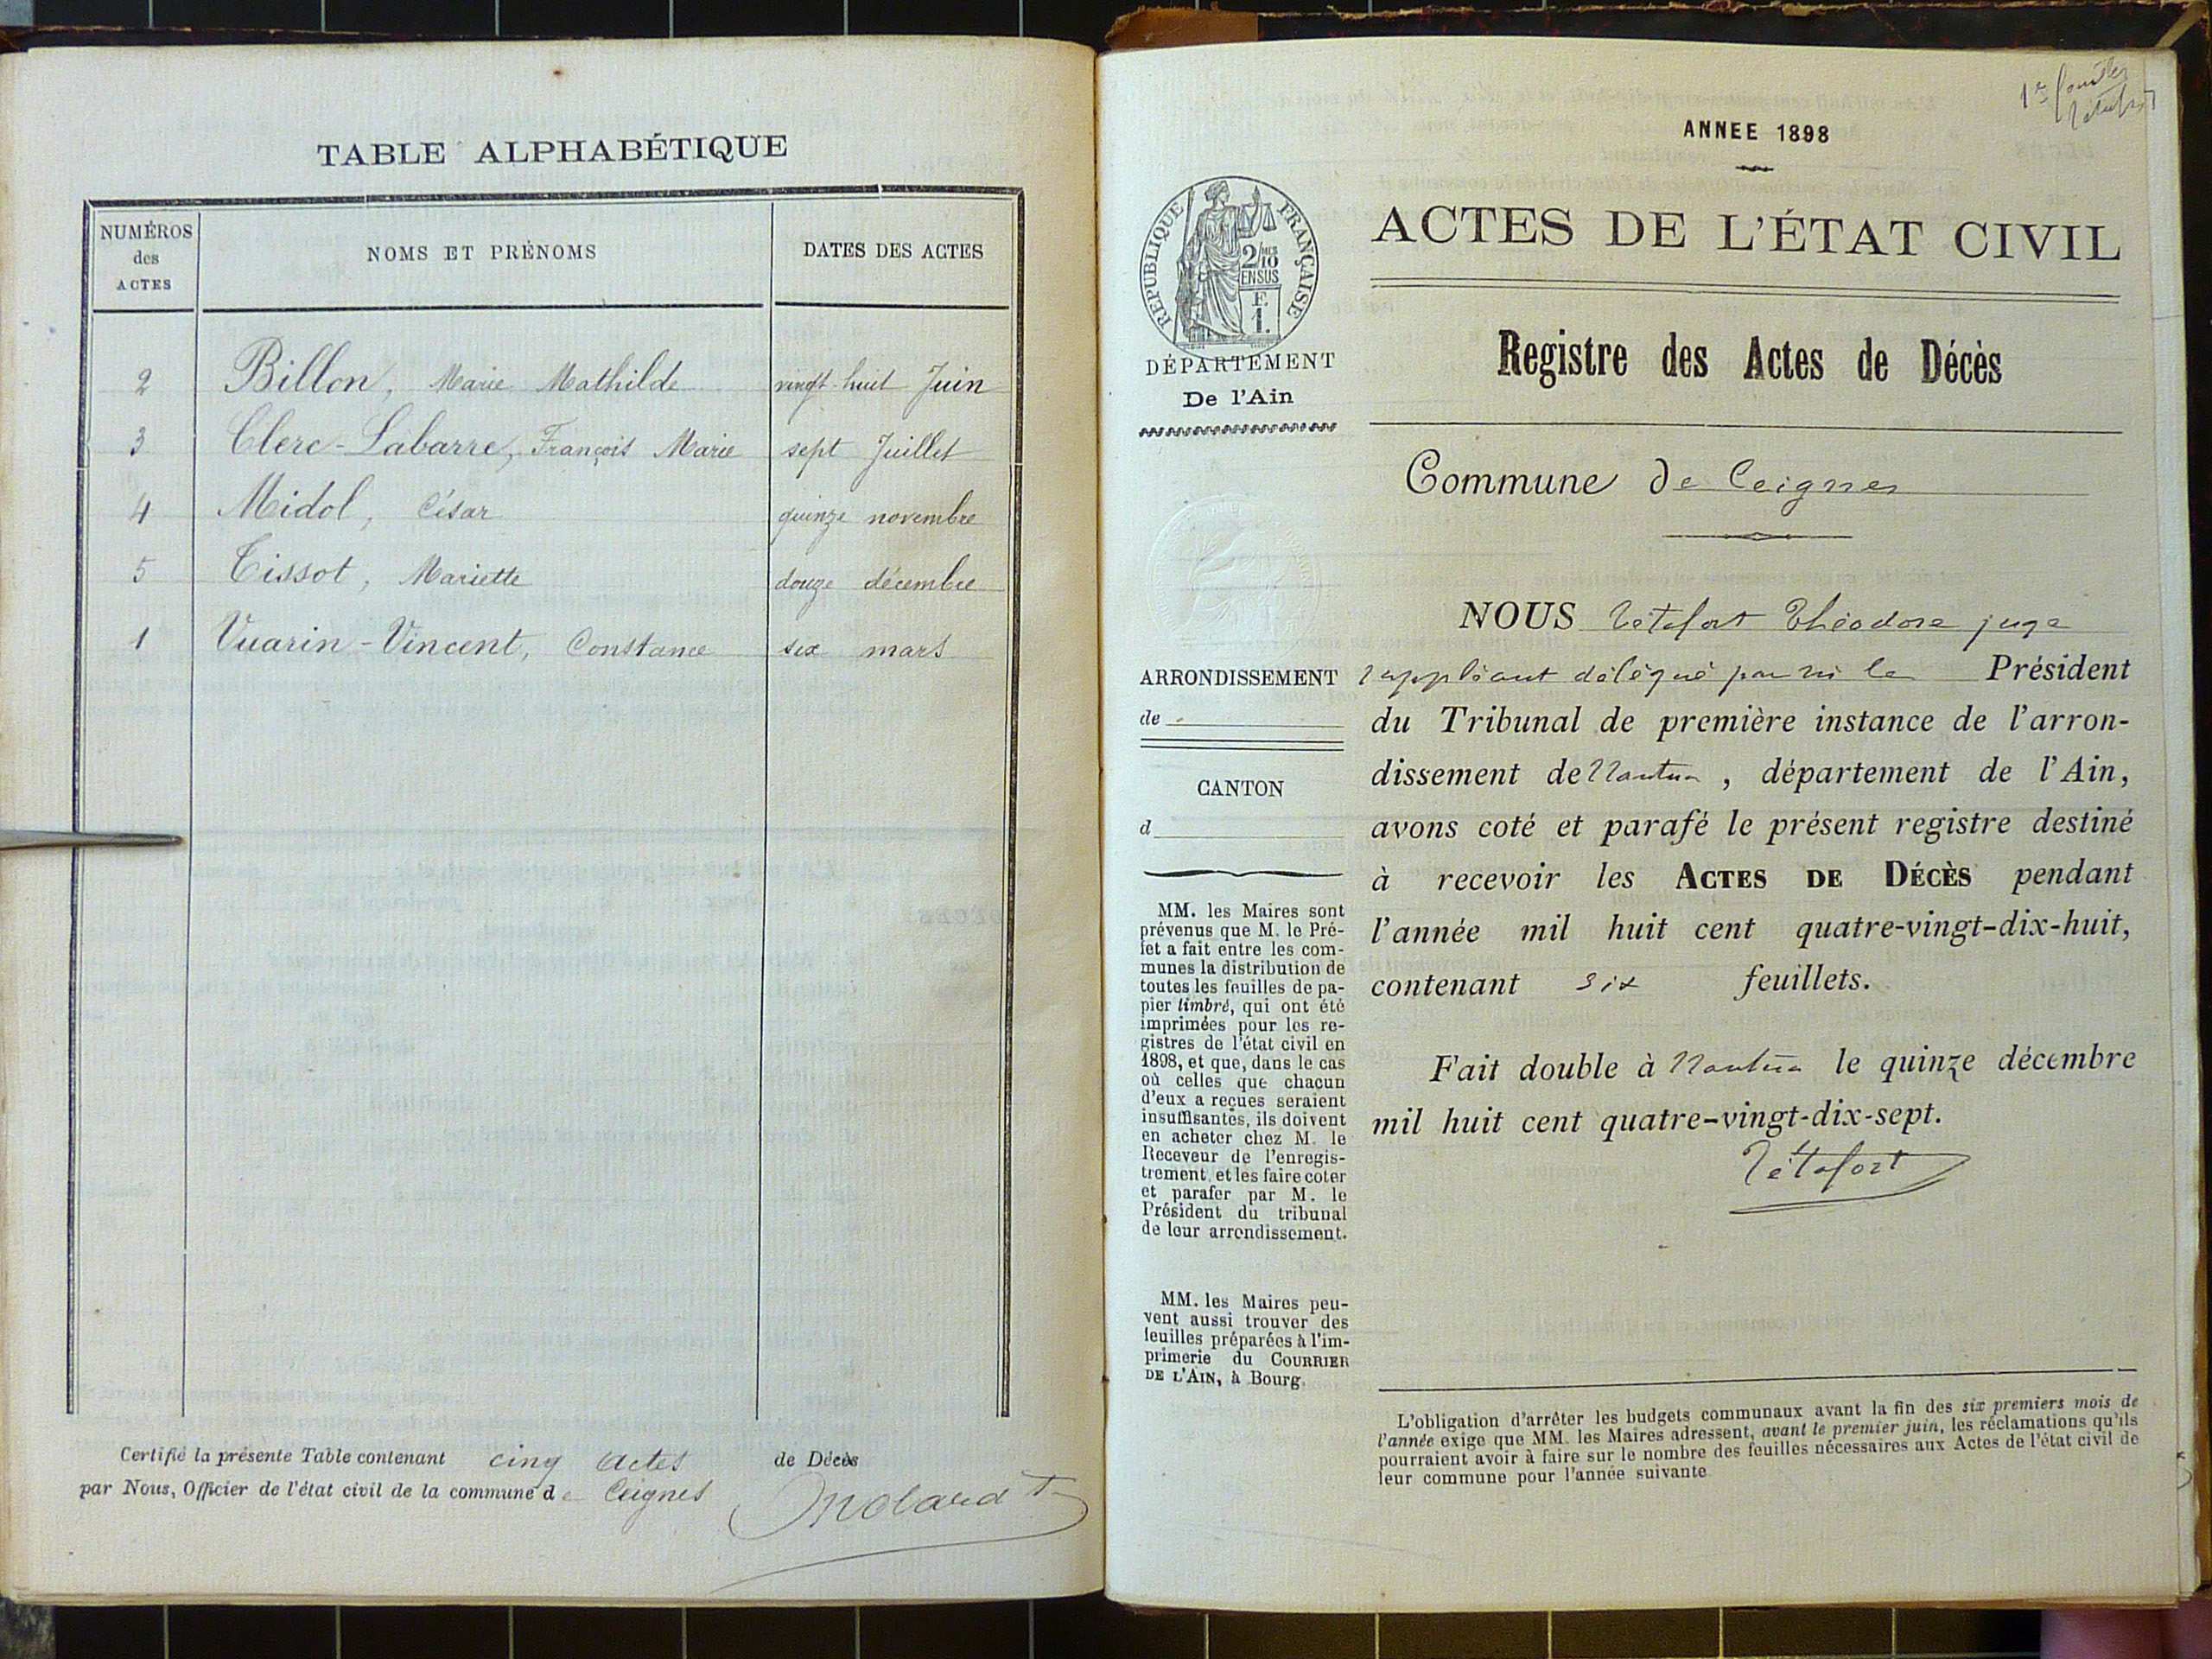 TABLE ALPHABÉTIQUE
NUMÉROS
des
ACTES
NOMS ET PRÉNOMS
DATES DES ACTES
2 Billon, Marie Mathilde vingt-huit Juin
3 Clerc-Labarre, François Marie sept Juillet
4 Midol, César quinze novembre
5 Tissot, Mariette douze décembre
1 Vuarin-Vincent, Constance six mars
Certifié la présente Table contenant cinq actes de Décès
par Nous, Officier de l'état civil de la commune de Ceignes
Molard
ANNEE 1898
RÉPUBLIQUE FRANÇAISE
2/10
EN SUS
F.
1.
DÉPARTEMENT
De l'Ain
ARRONDISSEMENT
de
CANTON
d
MM. les Maires sont
prévenus que M. le Pré-
fet a fait entre les com-
munes la distribution de
toutes les feuilles de pa-
pier timbré, qui ont été
imprimées pour les re-
gistres de l'état civil en
1898, et que, dans le cas
où celles que chacun
d'eux a reçues seraient
insuffisantes, ils doivent
en acheter chez M. le
Receveur de l'enregis-
trement et les faire coter
et parafer par M. le
Président du tribunal
de leur arrondissement.
MM. les Maires peu-
vent aussi trouver des
feuilles préparées à l'im-
primerie du COURRIER
DE L'AIN, à Bourg.
ACTES DE L'ÉTAT CIVIL
Registre des Actes de Décès
Commune de Ceignes
NOUS Tétafort Théodore juge
suppléant délégué par nous le Président
du Tribunal de première instance de l'arron-
dissement de Nantua, département de l'Ain,
avons coté et parafé le présent registre destiné
à recevoir les ACTES DE DÉCÈS pendant
l'année mil huit cent quatre-vingt-dix-huit,
contenant six feuillets.
Fait double à Nantua le quinze décembre
mil huit cent quatre-vingt-dix-sept.
Tétafort
L'obligation d'arrêter les budgets communaux avant la fin des six premiers mois de
l'année exige que MM. les Maires adressent, avant le premier juin, les réclamations qu'ils
pourraient avoir à faire sur le nombre des feuilles nécessaires aux Actes de l'état civil de
leur commune pour l'année suivante